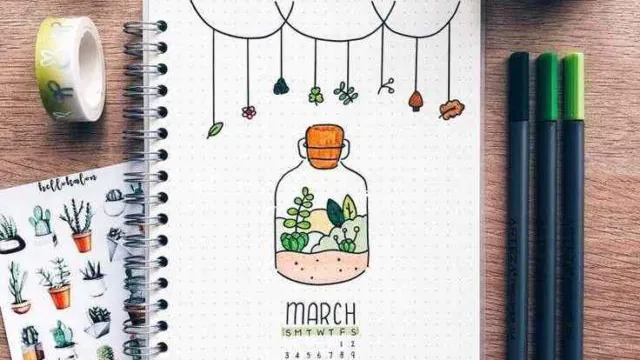 hellohalon
MARCH
S M T W T F S
1 2
3 4 5 6 7 8 9